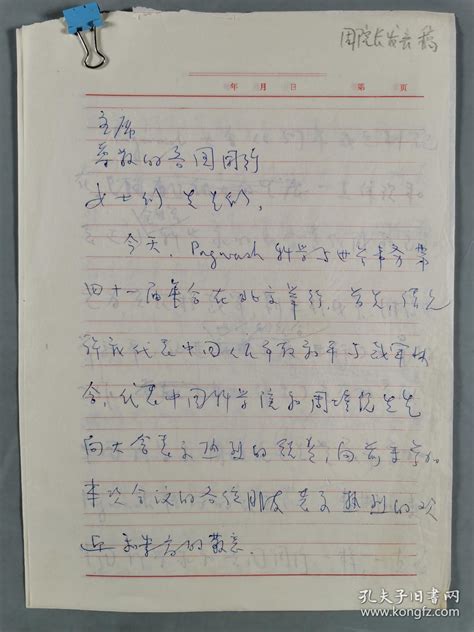 周院长发言稿
年 月 日 第 页
主席
尊敬的各国同行
女士们 先生们,
今天, Pugwash 科学与世界事务第
四十一届年会在北京举行, 首先, 请允
许我代表中国人民争取和平与裁军协
会, 代表中国科学院和周培源先生
向大会表示热烈的祝贺, 向前来参加
本次会议的各位朋友表示热烈的欢
迎和崇高的敬意
孔夫子旧书网
www.kongfz.com